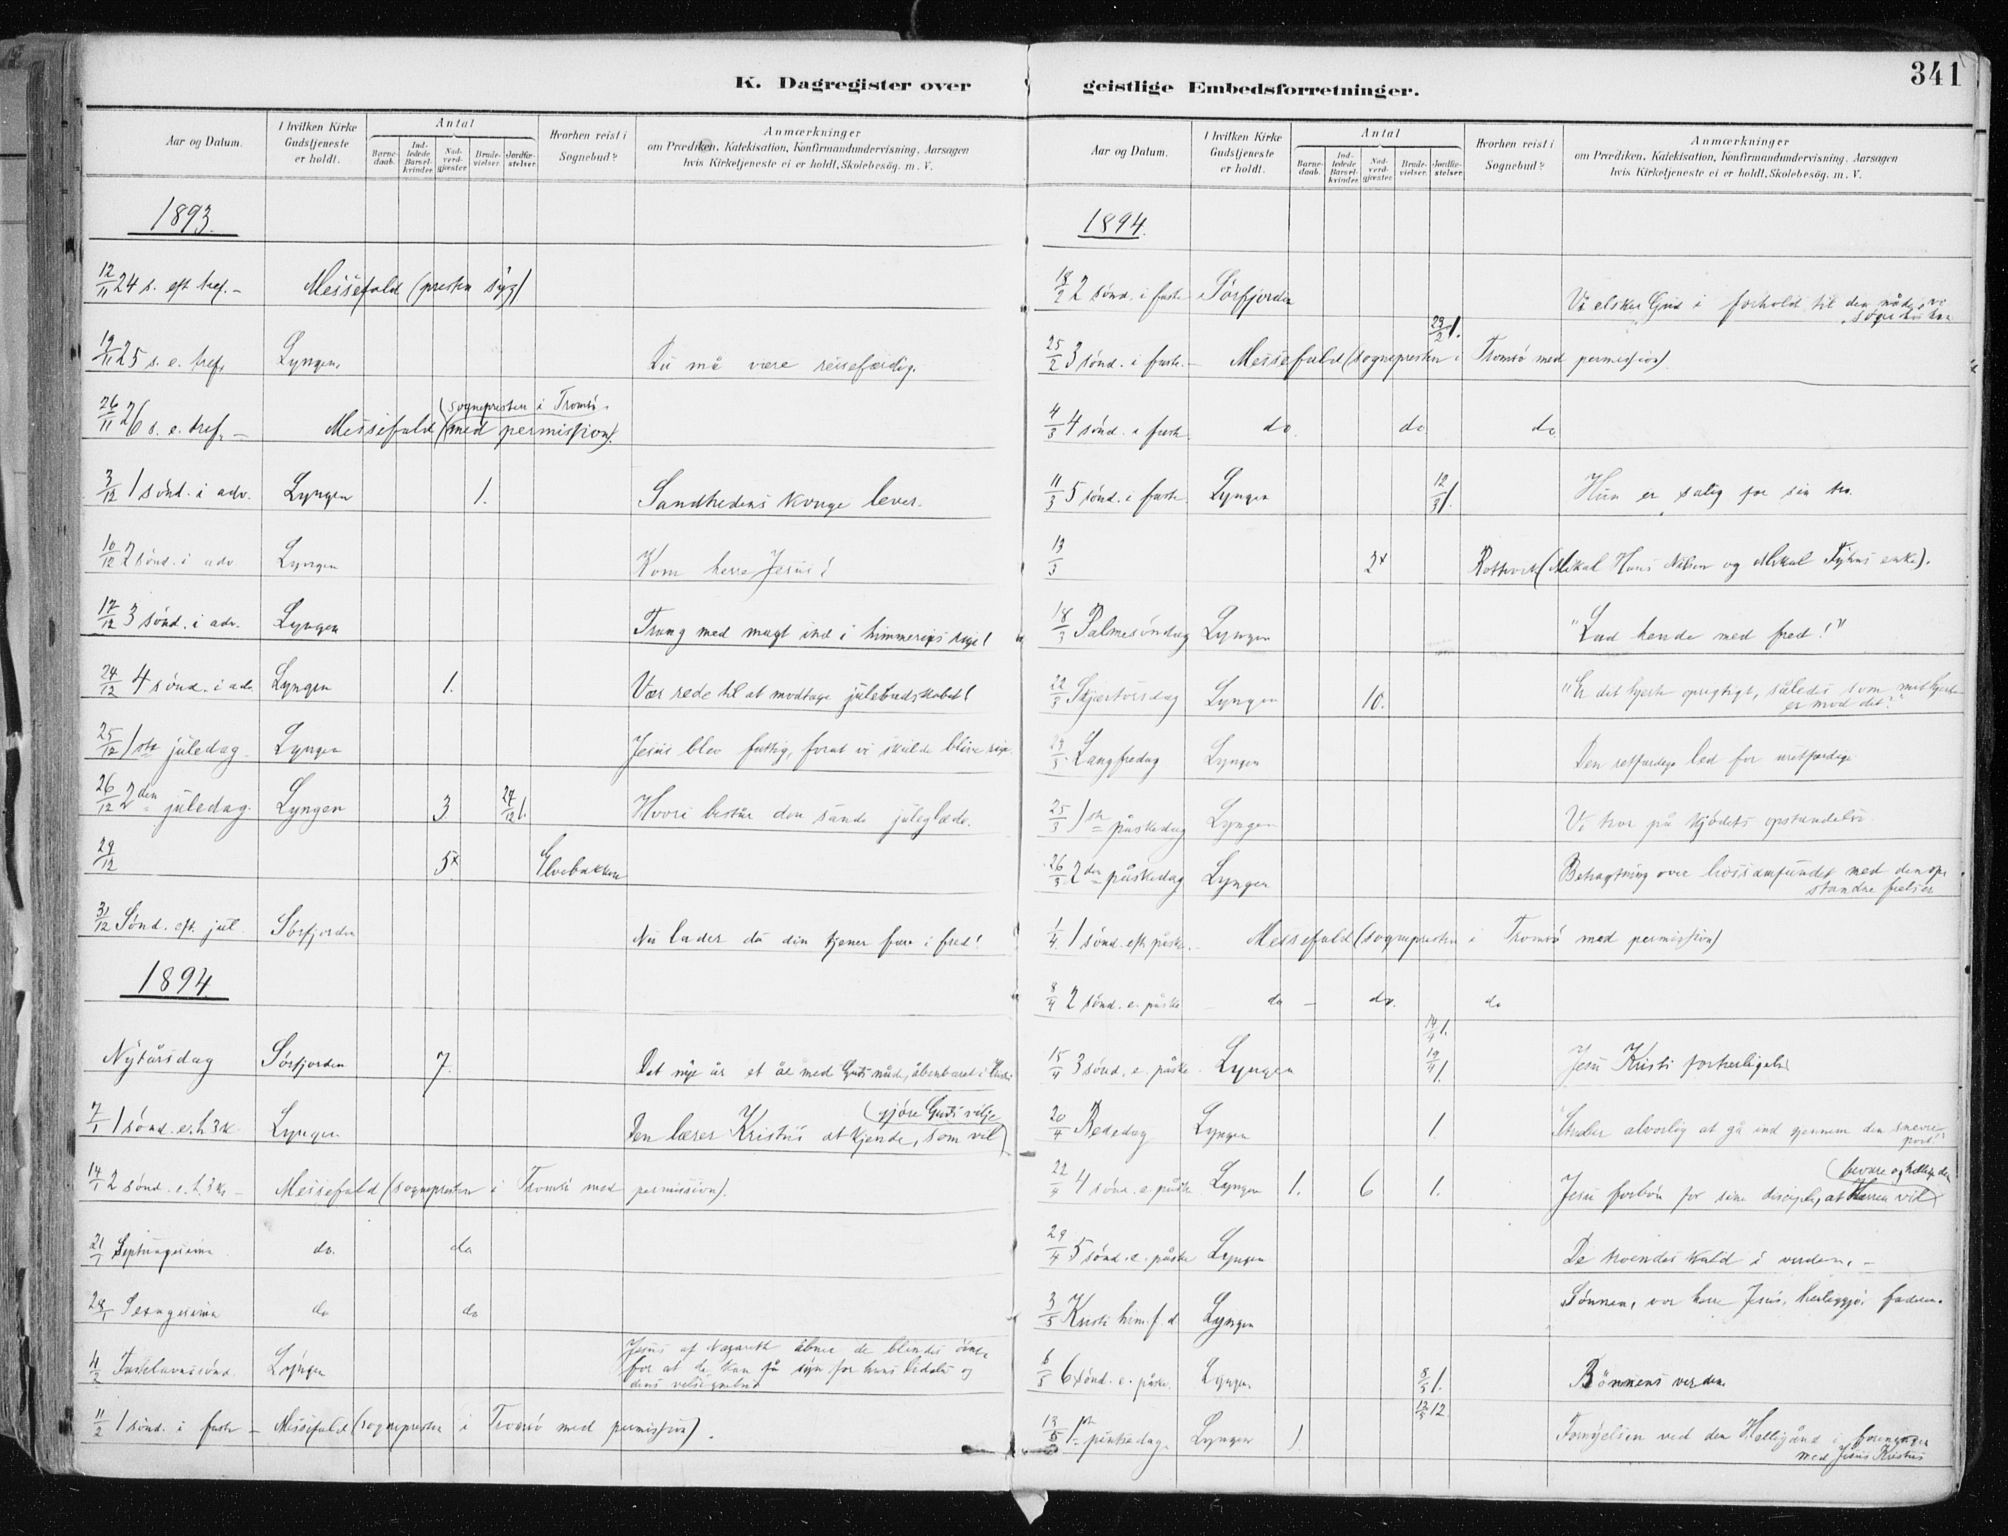 341
K. Dagregister over
Aar og Datum.
I hvilken Kirke Gudstjeneste er holdt.
Antal
Barne-daab.
Ind-ledede Barsel-kvinder.
Nad-verd-gjester.
Brude-vielser.
Jordfæ-stelser.
Hvorhen reist i Sognebud?
Anmærkninger
om Prædiken, Katekisation, Konfirmandundervisning, Aarsagen
hvis Kirketjeneste ei er holdt, Skolebesög. m. V.
1893.
12/11 24 s. eft tref. – Messefald (presten syg)
19/11 25 s. e. tref. Lyngen. Du må være reisefærdig.
(sognepresten i Tromsö.
26/11 26 s. e. tref. – Messefald (med permission).
3/12 1 sönd. i adv. Lyngen 1. Sandhedens konge lever.
10/12 2 sönd. i adv Lyngen Kom herre Jesus!
17/12 3 sönd. i adv. Lyngen Træng med magt ind i himmeriges rige!
24/12 4 sönd. i adv. Lyngen 1. Vær rede til at modtage julebudskabet!
25/12 1ste juledag Lyngen Jesus blev fattig, forat vi skulde blive rige.
26/12 2den juledag. Lyngen 3 27/12 1. Hvori består den sande juleglæde.
29/12 5x Elvebakken
31/12 Sönd. eft. jul. Sörfjorden Nu lader du din tjener fare i fred!
1894
Nytårsdag Sörfjorden 7. Det nye år et år med Guds nåde, åbenbaret i
(gjöre Guds vilje
7/1 1 sönd. e. h. 3 k. Lyngen Den lærer Kristus at kjende, som vil
14/1 2 sönd. e. h. 3 k. – Messefald (sognepresten i Tromsö med permission).
21/1 Septuagesima do. do
28/1 Sexagesima do do
4/2 Fastelavnssönd. Lyngen Jesus af Nazareth åbner de blindes öine
for at de kan få syn for hans og
dens velsignelse
11/2 1 sönd. i faste – Messefald (sognepresten i Tromsö med permission).
geistlige Embedsforretninger.
Aar og Datum.
I hvilken Kirke Gudstjeneste er holdt.
Antal
Barne-daab.
Ind-ledede Barsel-kvinder.
Nad-verd-gjester.
Brude-vielser.
Jordfæ-stelser.
Hvorhen reist i Sognebud?
Anmærkninger
om Prædiken, Katekisation, Konfirmandundervisning, Aarsagen
hvis Kirketjeneste ei er holdt, Skolebesög. m. V.
1894.
18/2 2 sönd. i faste Sörfjorden Vi elsker Gud i forhold til den nåde, vi
23/2 1.
25/2 3 sönd. i faste. – Messefald (sognepresten i Tromsö med permission).
4/3 4 sönd. i faste do. do do
11/3 5 sönd. i faste Lyngen 12/3 1. Hun er salig for sin tro.
13/3 2x Rottvik (Mikal Hans Nilsen og Mikal enke).
18/3 Palmesöndag Lyngen "Lad hende med fred!"
22/3 Skjærtorsdag Lyngen 10. "Er dit hjerte oprigtigt, således som mit hjerte
er mod dit?"
23/3 Langfredag Lyngen Den retfærdige led for uretfærdige
25/3 1ste påskedag Lyngen Vi tror på kjödets opstandelse.
26/3 2den påskedag Lyngen Betragtning over livssamfundet med den op-
standne frelser
1/4 1 sönd. eft påske. – Messefald (sognepresten i Tromsö med permission)
8/4 2 sönd. e. påske – do – do. do
14/4 1.
15/4 3 sönd. e. påske Lyngen 19/4 1. Jesu Kristi forherligelse
20/4 Bededag Lyngen 1. Stræber alvorlig at gå ind gjennem den snevre
port!
(bevare og hellige dem
22/4 4 sönd. e. påske Lyngen 1. 6 1. Jesu forbön for sine disciple, at Herren vil
29/4 5 sönd. e. påske Lyngen De troendes kald i verden. –
3/5 Kristi him. f. d. Lyngen Sönnen, vor herre Jesus, herliggjör faderen.
6/5 6 sönd. e. påske. Lyngen 8/5 1. Bönnens verden
12/5 12.
13/5 1ste pintsedag Lyngen 1. Fornyelsen ved den Helligånd i foreningen
med Jesus Kristus